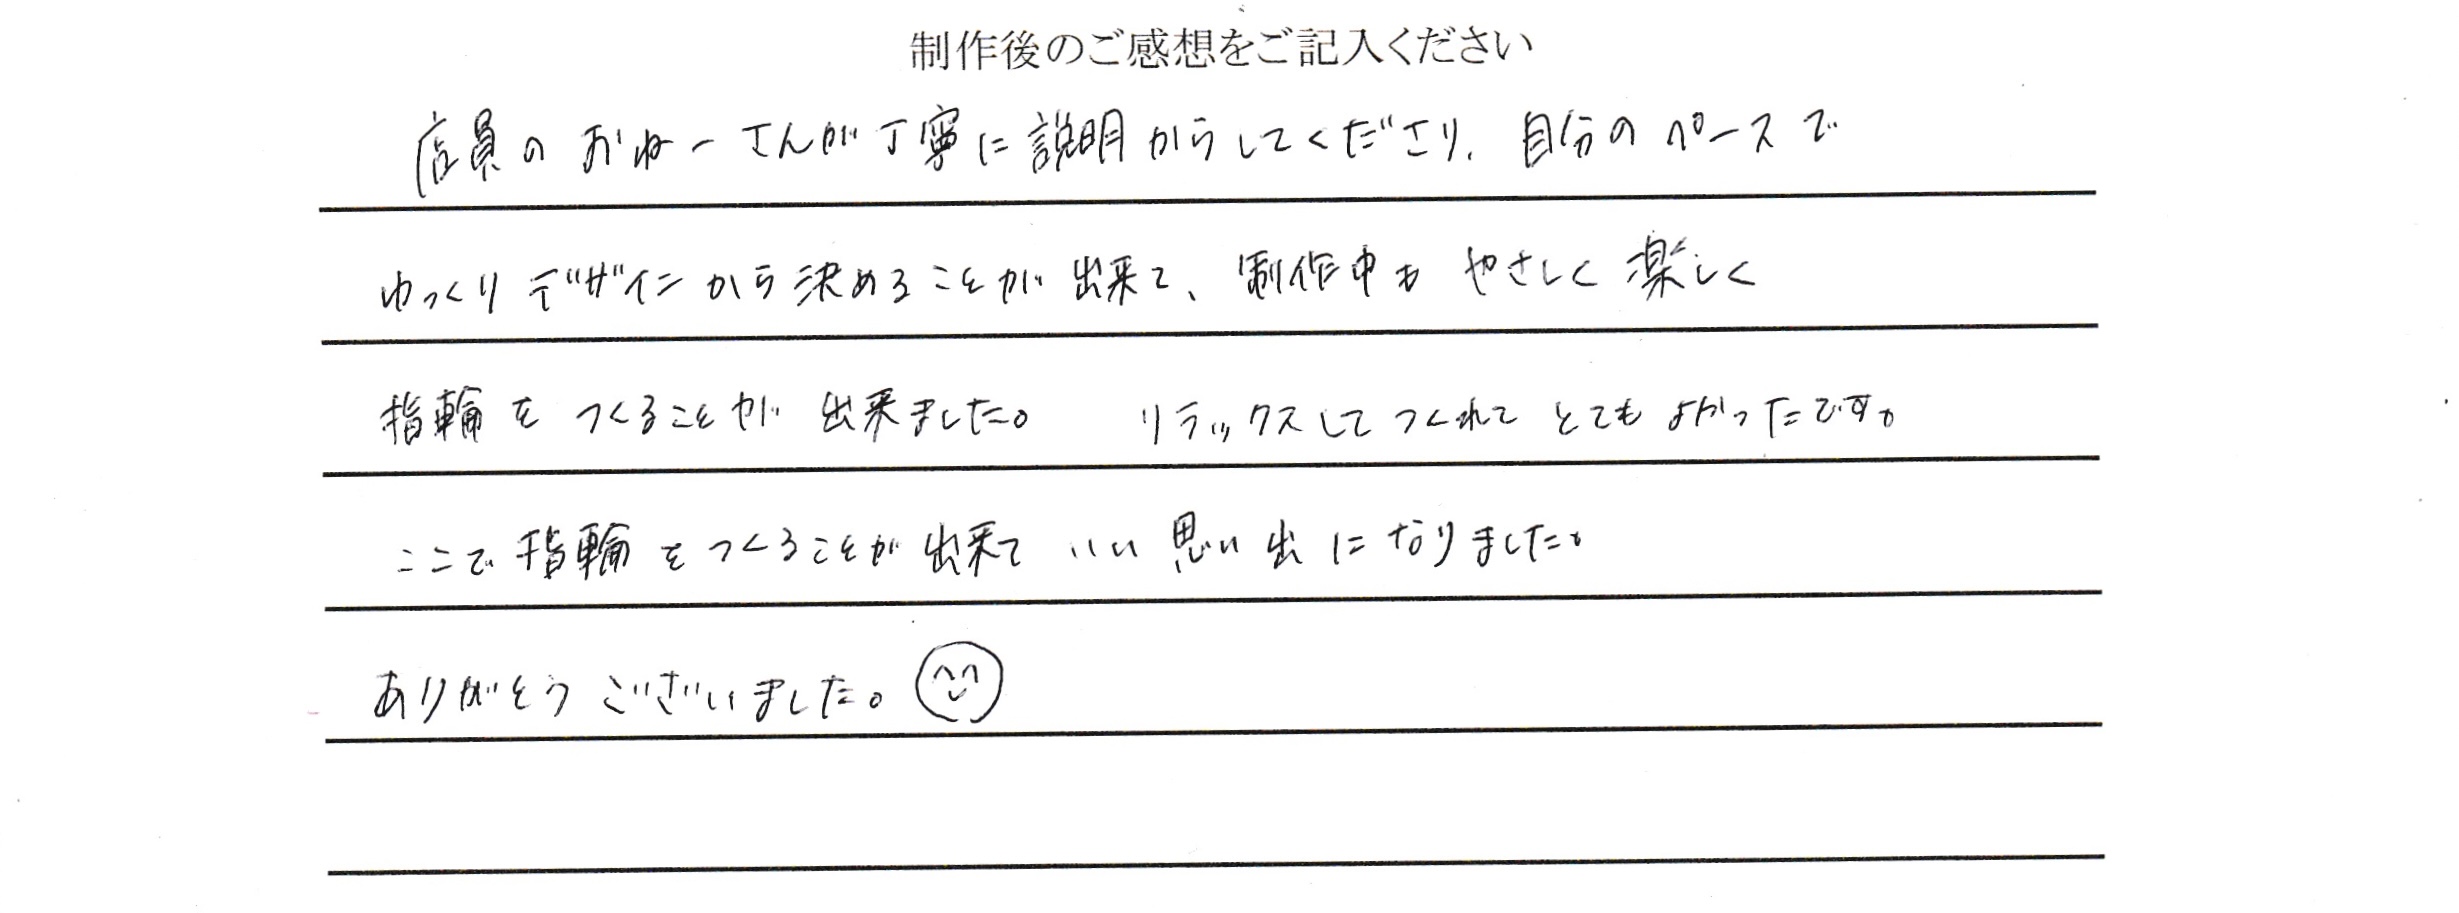 制作後のご感想をご記入ください
店員のおねーさんが丁寧に説明からしてくださり、自分のペースで
ゆっくりデザインから決めることが出来て、制作中もやさしく楽しく
指輪をつくることが出来ました。 リラックスしてつくれてとてもよかったです。
ここで指輪をつくることが出来ていい思い出になりました。
ありがとうございました。